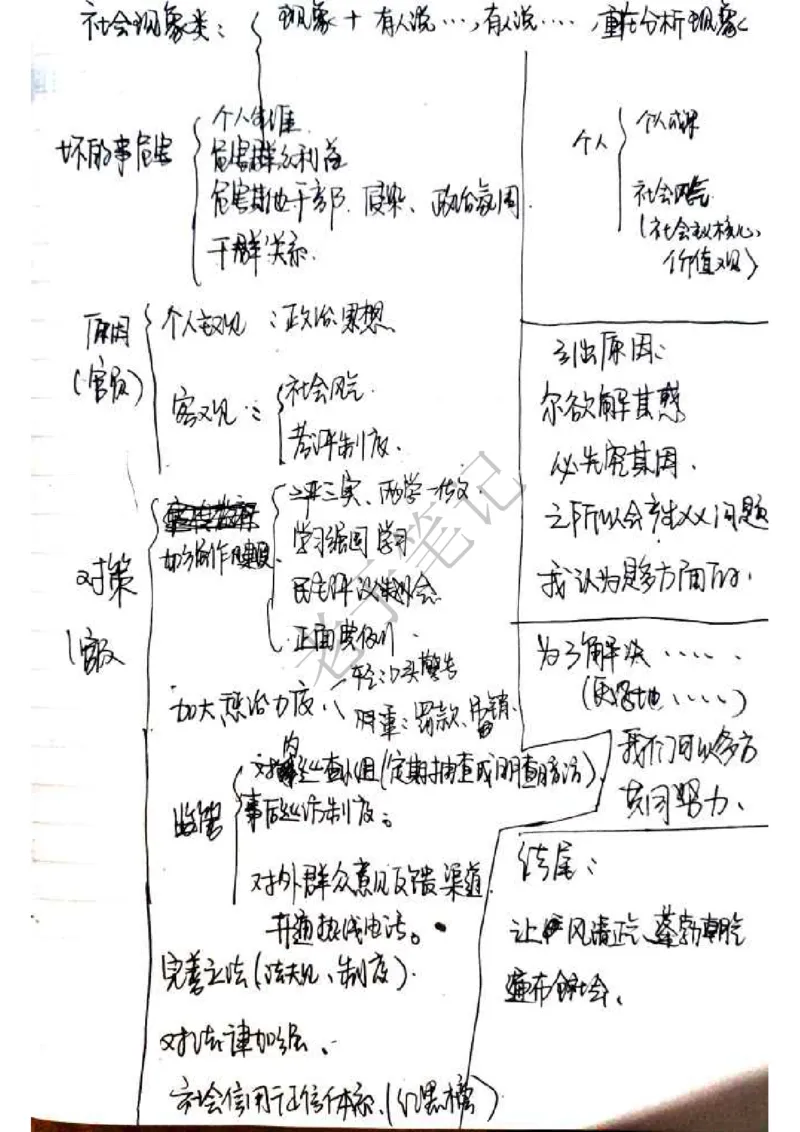 社会现象类：现象 + 有人说…，有人说…，重在分析现象
坏的事危害
个人生涯
危害群众利益
危害其他干部、政治氛围
干群关系.
个人
个人成果
社会风气
(社会主义核心
价值观)
原因
(官员)
个人主观：政治思想
客观：
社会风气.
考评制度.
引出原因：
尔欲解其惑
必先究其因.
之所以会产生XX问题
我认为是多方面的.
对策
加强作风建设
三严三实、两学一做.
学习强国 学习
民主评议
正面典例
加大惩治力度.
轻：口头警告
严重：罚款、吊销.
为了解决……
(更好地……)
我们可以多方
共同努力.
监督
对内巡查小组(定期抽查或明查暗访)
事后巡访制度。
对外群众意见反馈渠道.
开通热线电话。
完善立法(法规、制度).
对法律加强、
社会信用征信体系.(红黑榜)
结尾：
让风清正气、蓬勃朝气
遍布全社会.
老于笔记